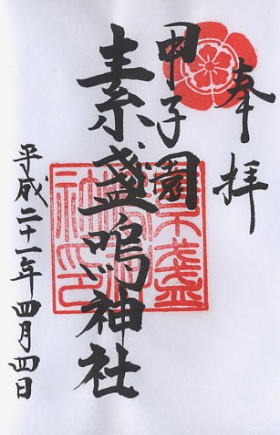 奉拝
甲子園
素盞嗚神社
平成二十一年四月四日